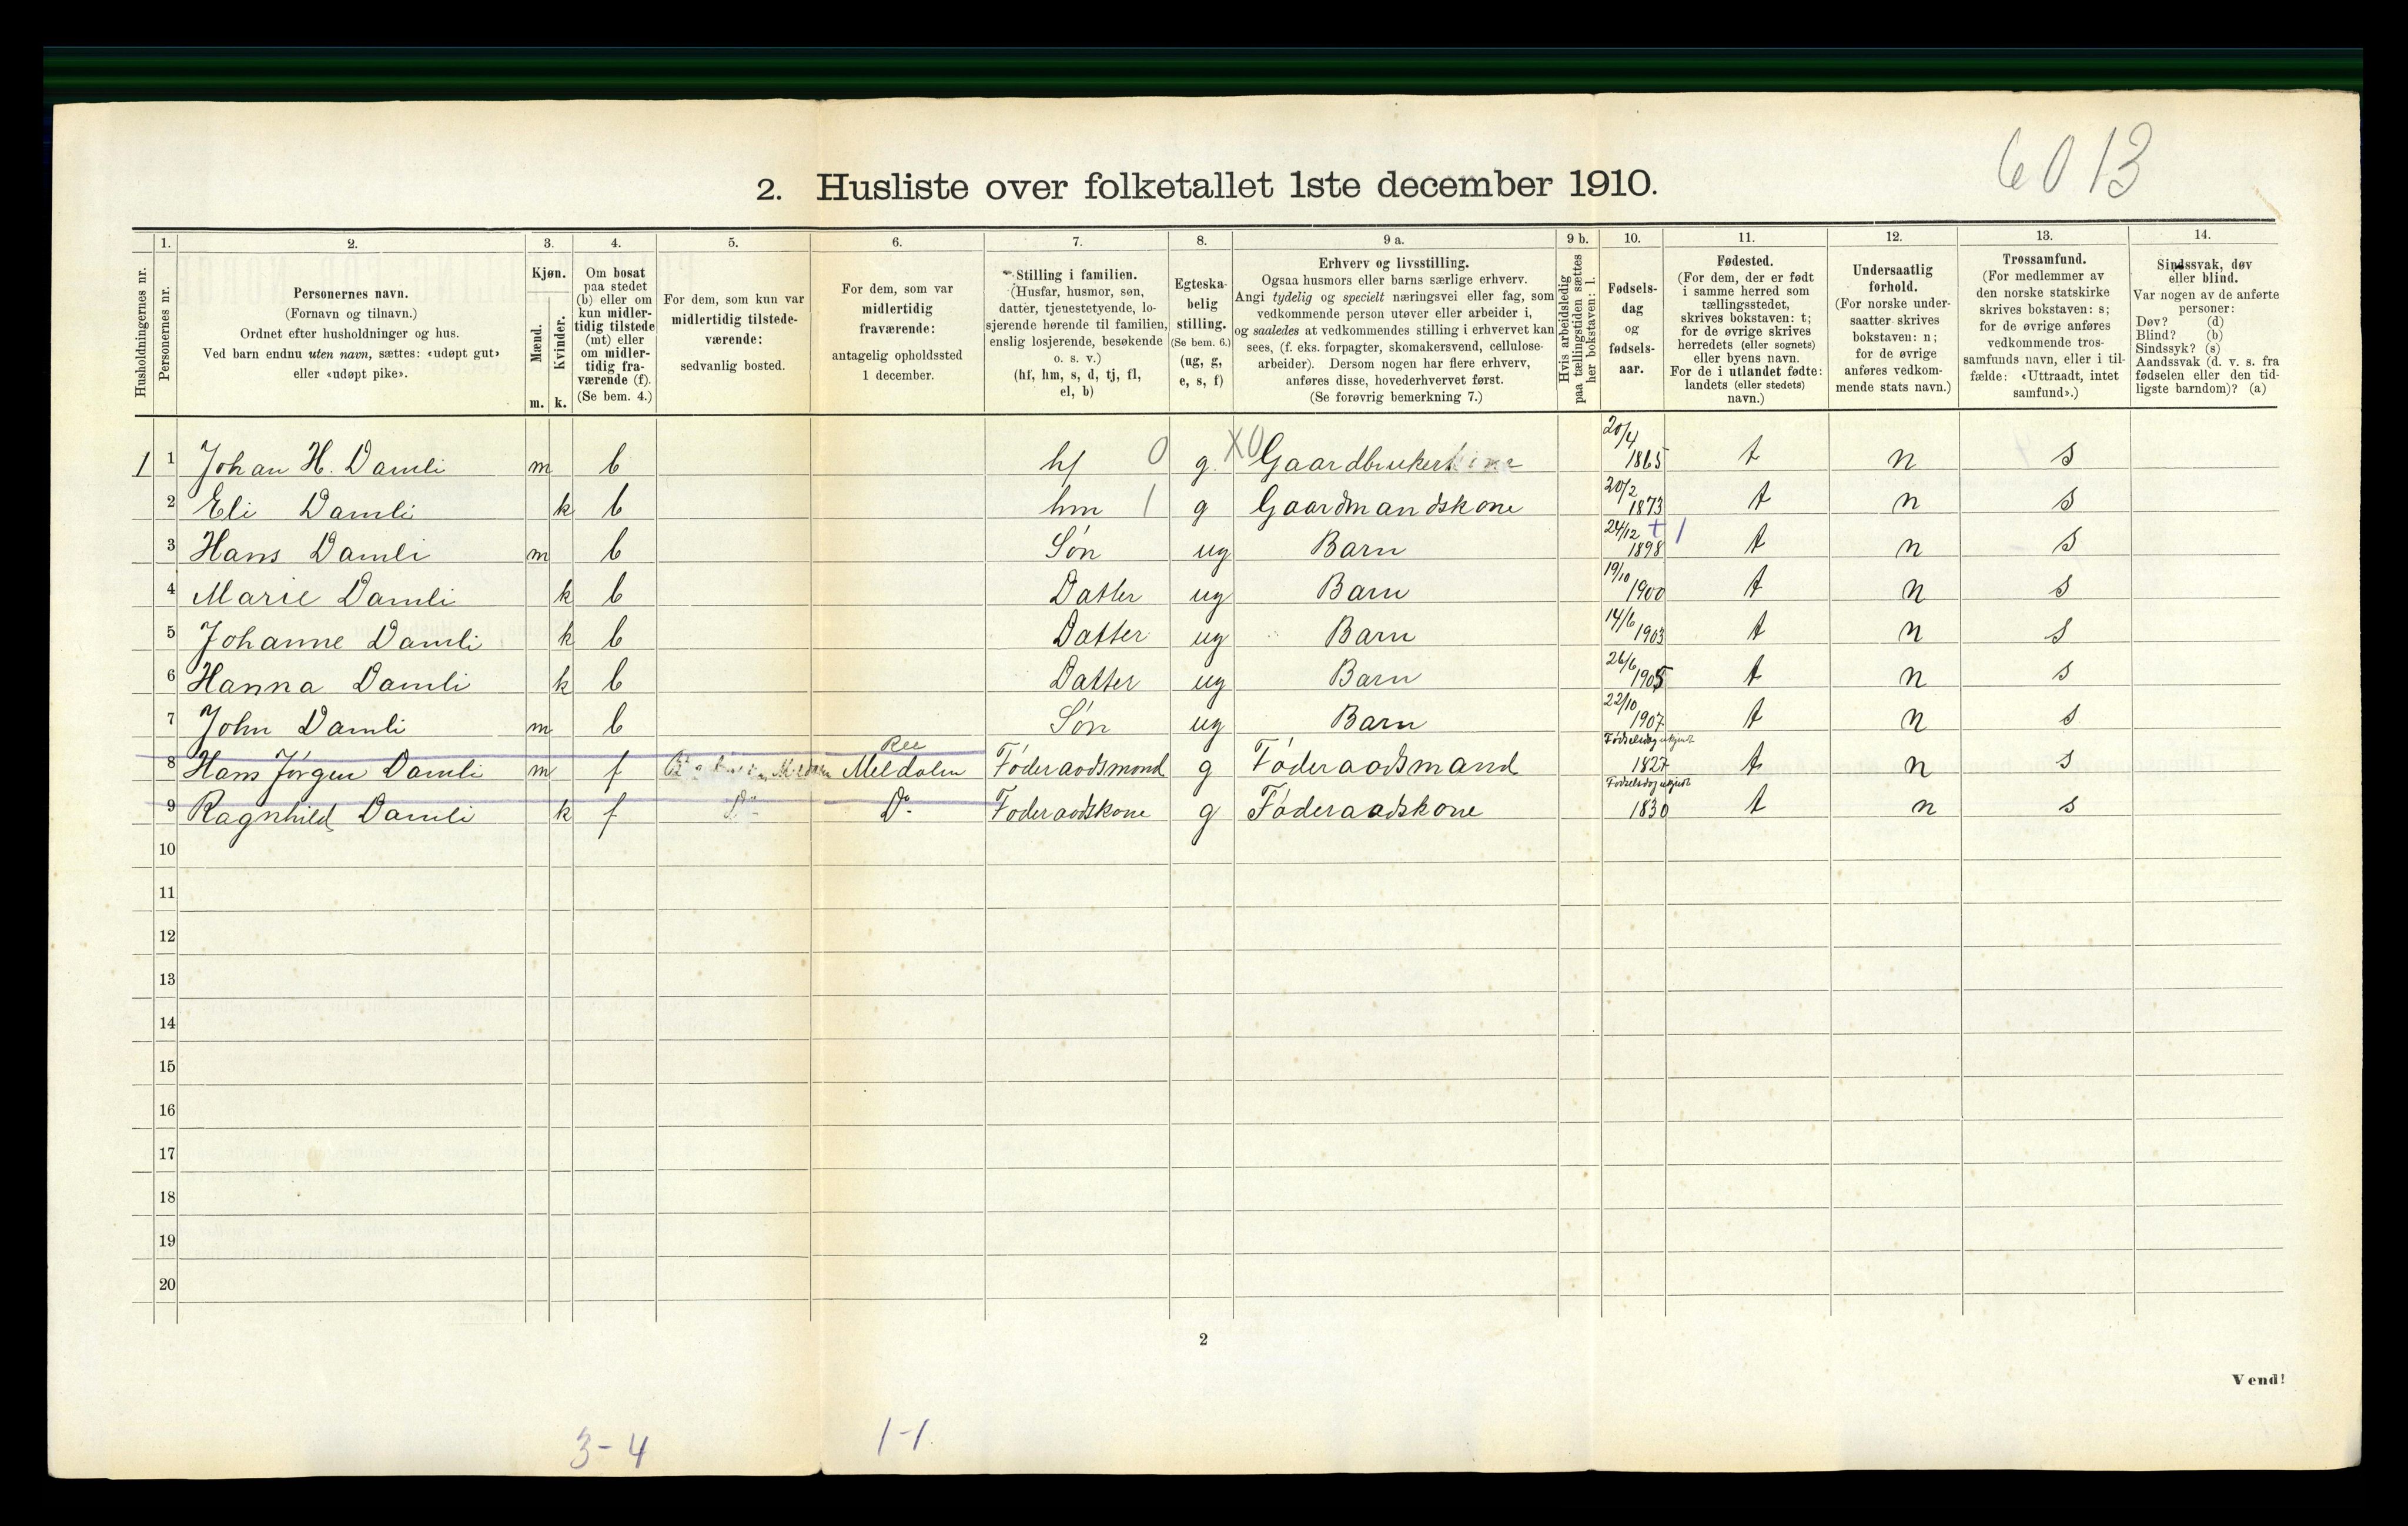 6013
2. Husliste over folketallet 1ste december 1910.
1. 2. 3. 4. 5. 6. 7. 8. 9 a. 9 b. 10. 11. 12. 13. 14.
Husholdningernes nr.
Personernes nr.
Personernes navn.
(Fornavn og tilnavn.)
Ordnet efter husholdninger og hus.
Ved barn endnu uten navn, sættes: «udøpt gut»
eller «udøpt pike».
Kjøn.
Mænd.
Kvinder.
m. k.
Om bosat
paa stedet
(b) eller om
kun midler-
tidig tilstede
(mt) eller
om midler-
tidig fra-
værende (f).
(Se bem. 4.)
For dem, som kun var
midlertidig tilstede-
værende:
sedvanlig bosted.
For dem, som var
midlertidig
fraværende:
antagelig opholdssted
1 december.
Stilling i familien.
(Husfar, husmor, søn,
datter, tjenestetyende, lo-
sjerende hørende til familien,
enslig losjerende, besøkende
o. s. v.)
(hf, hm, s, d, tj, fl,
el, b)
Egteska-
belig
stilling.
(Se bem. 6.)
(ug, g,
e, s, f)
Erhverv og livsstilling.
Ogsaa husmors eller barns særlige erhverv.
Angi tydelig og specielt næringsvei eller fag, som
vedkommende person utøver eller arbeider i,
og saaledes at vedkommendes stilling i erhvervet kan
sees, (f. eks. forpagter, skomakersvend, cellulose-
arbeider). Dersom nogen har flere erhverv,
anføres disse, hovederhvervet først.
(Se forøvrig bemerkning 7.)
Hvis arbeidsledig
paa tællingstiden sættes
her bokstaven: l.
Fødsels-
dag
og
fødsels-
aar.
Fødested.
(For dem, der er født
i samme herred som
tællingsstedet,
skrives bokstaven: t;
for de øvrige skrives
herredets (eller sognets)
eller byens navn.
For de i utlandet fødte:
landets (eller stedets)
navn.)
Undersaatlig
forhold.
(For norske under-
saatter skrives
bokstaven: n;
for de øvrige
anføres vedkom-
mende stats navn.)
Trossamfund.
(For medlemmer av
den norske statskirke
skrives bokstaven: s;
for de øvrige anføres
vedkommende tros-
samfunds navn, eller i til-
fælde: «Uttraadt, intet
samfund».)
Sindssvak, døv
eller blind.
Var nogen av de anførte
personer:
Døv? (d)
Blind? (b)
Sindssyk? (s)
Aandssvak (d. v. s. fra
fødselen eller den tid-
ligste barndom)? (a)
1 1 Johan H. Damli m b hf 0 g X0 Gaardbruker 20/4 1865 t n s
2 Eli Damli k b hm 1 g Gaardmandskone 20/2 1873 t n s
3 Hans Damli m b Søn ug Barn 24/12 1898 + 1 t n s
4 Marie Damli k b Datter ug Barn 19/10 1900 t n s
5 Johanne Damli k b Datter ug Barn 14/6 1903 t n s
6 Hanna Damli k b Datter ug Barn 26/6 1905 t n s
7 John Damli m b Søn ug Barn 22/10 1907 t n s
8 Hans Jörgen Damli m f Meldalen Føderaadsmand g Føderaadsmand Fødselsdag ukjent 1827 t n s
9 Ragnhild Damli k f Do Do Føderaadskone g Føderaadskone Fødselsdag ukjent 1830 t n s
10
11
12
13
14
15
16
17
18
19
20
2
Vend!
3-4 1-1